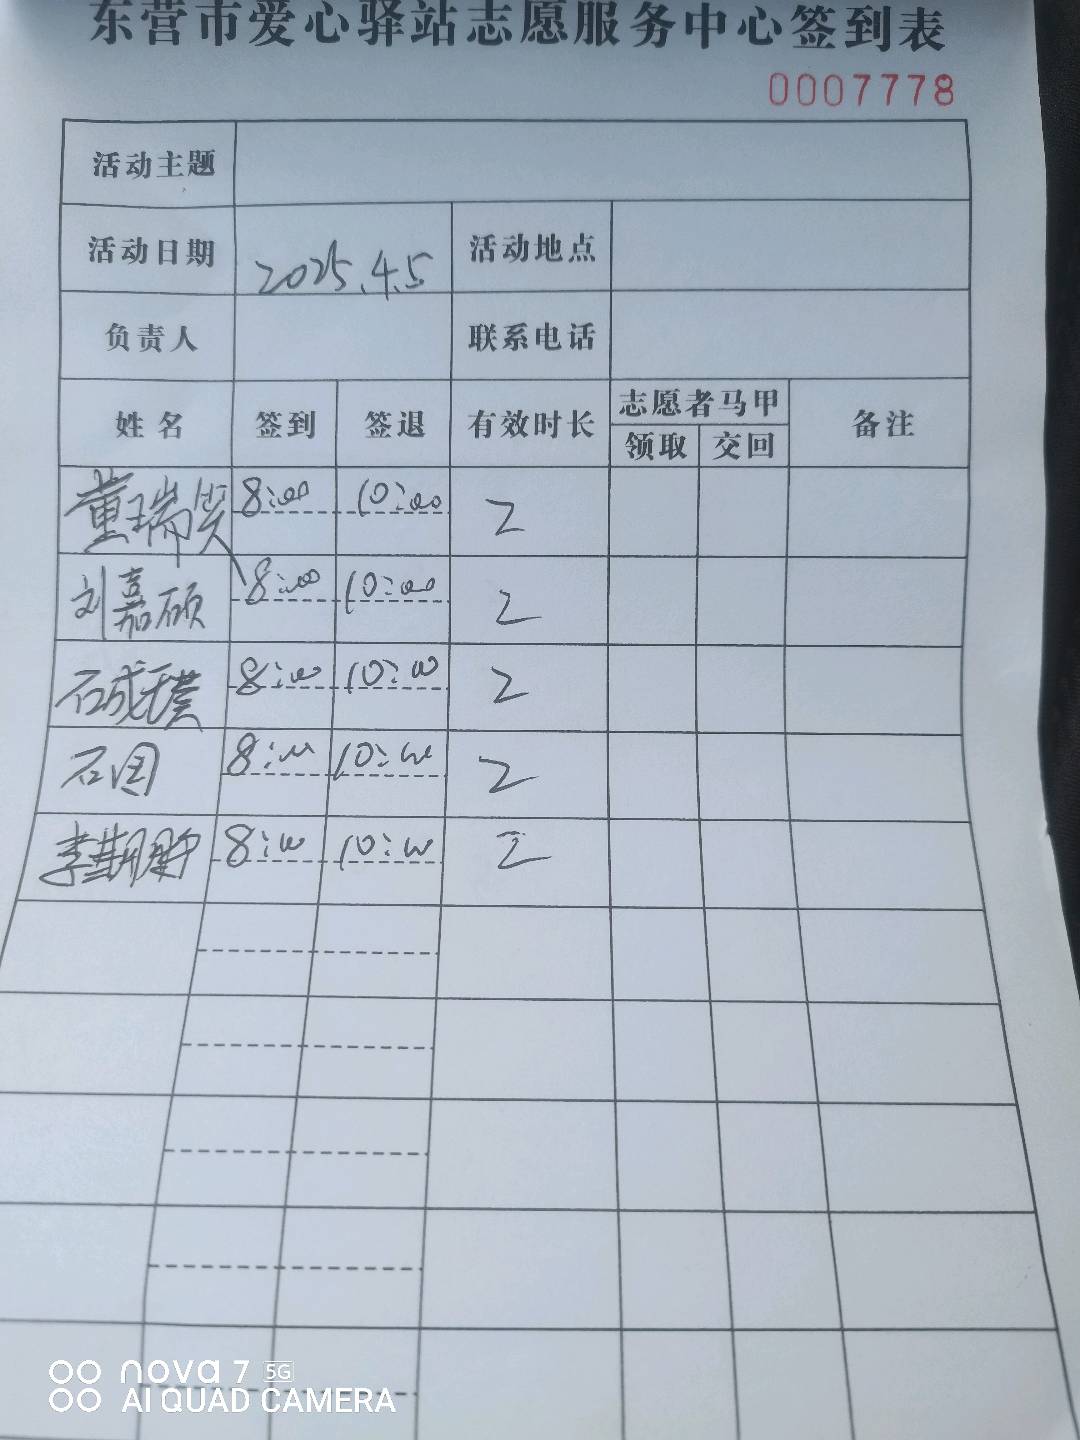 东营市爱心驿站志愿服务中心签到表
0007778
活动主题
活动日期 2025.4.5 活动地点
负责人 联系电话
姓名 签到 签退 有效时长 志愿者马甲 备注
领取 交回
董瑞 8:00 10:00 2
刘嘉硕 8:00 10:00 2
石成璞 8:00 10:00 2
石国 8:00 10:00 2
李 8:00 10:00 2
nova 7 5G
AI QUAD CAMERA